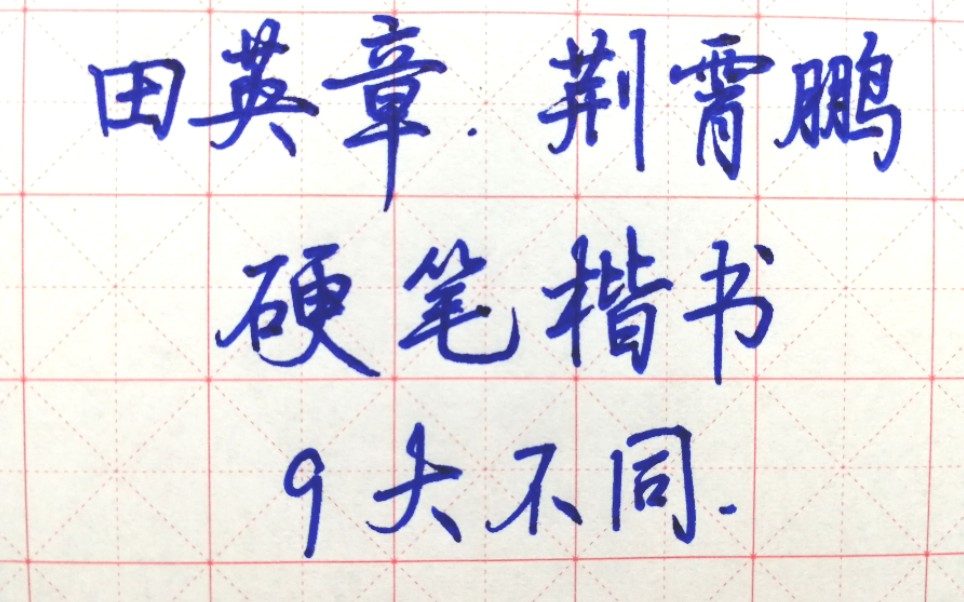 田英章.荆霄鹏
硬笔楷书
9大不同.